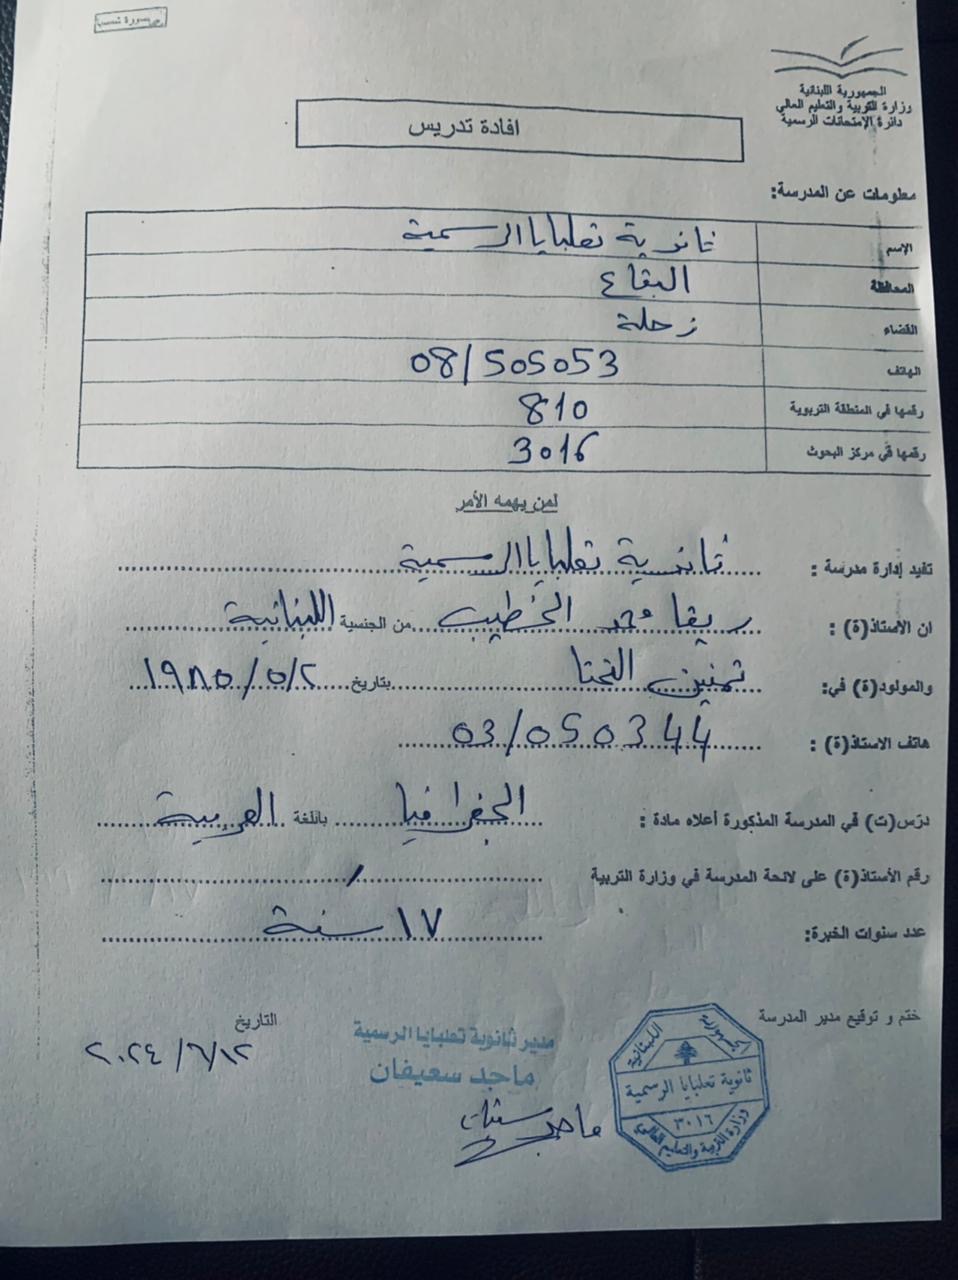 الجمهورية اللبنانية
وزارة التربية والتعليم العالي
دائرة الإمتحانات الرسمية
افادة تدريس
معلومات عن المدرسة:
الإسم ثانوية تعلبايا الرسمية
المحافظة البقاع
القضاء زحلة
الهاتف 08/505053
رقمها في المنطقة التربوية 810
رقمها في مركز البحوث 3016
لمن يهمه الأمر
تفيد إدارة مدرسة : ثانوية تعلبايا الرسمية
ان الأستاذ(ة) : ريفا محمد الخطيب من الجنسية اللبنانية
والمولود(ة) في: تمنين التحتا بتاريخ ١٩٨٥/٥/٢
هاتف الاستاذ(ة) : 03/050344
درّس(ت) في المدرسة المذكورة أعلاه مادة : الجغرافيا باللغة العربية
رقم الأستاذ(ة) على لائحة المدرسة في وزارة التربية /
عدد سنوات الخبرة: ١٧ سنة
ختم و توقيع مدير المدرسة
التاريخ
٢٠٢٤/٦/١٢
مدير ثانوية تعلبايا الرسمية
ماجد سعيفان
الجمهورية اللبنانية
ثانوية تعلبايا الرسمية
٣٠١٦
وزارة التربية والتعليم العالي